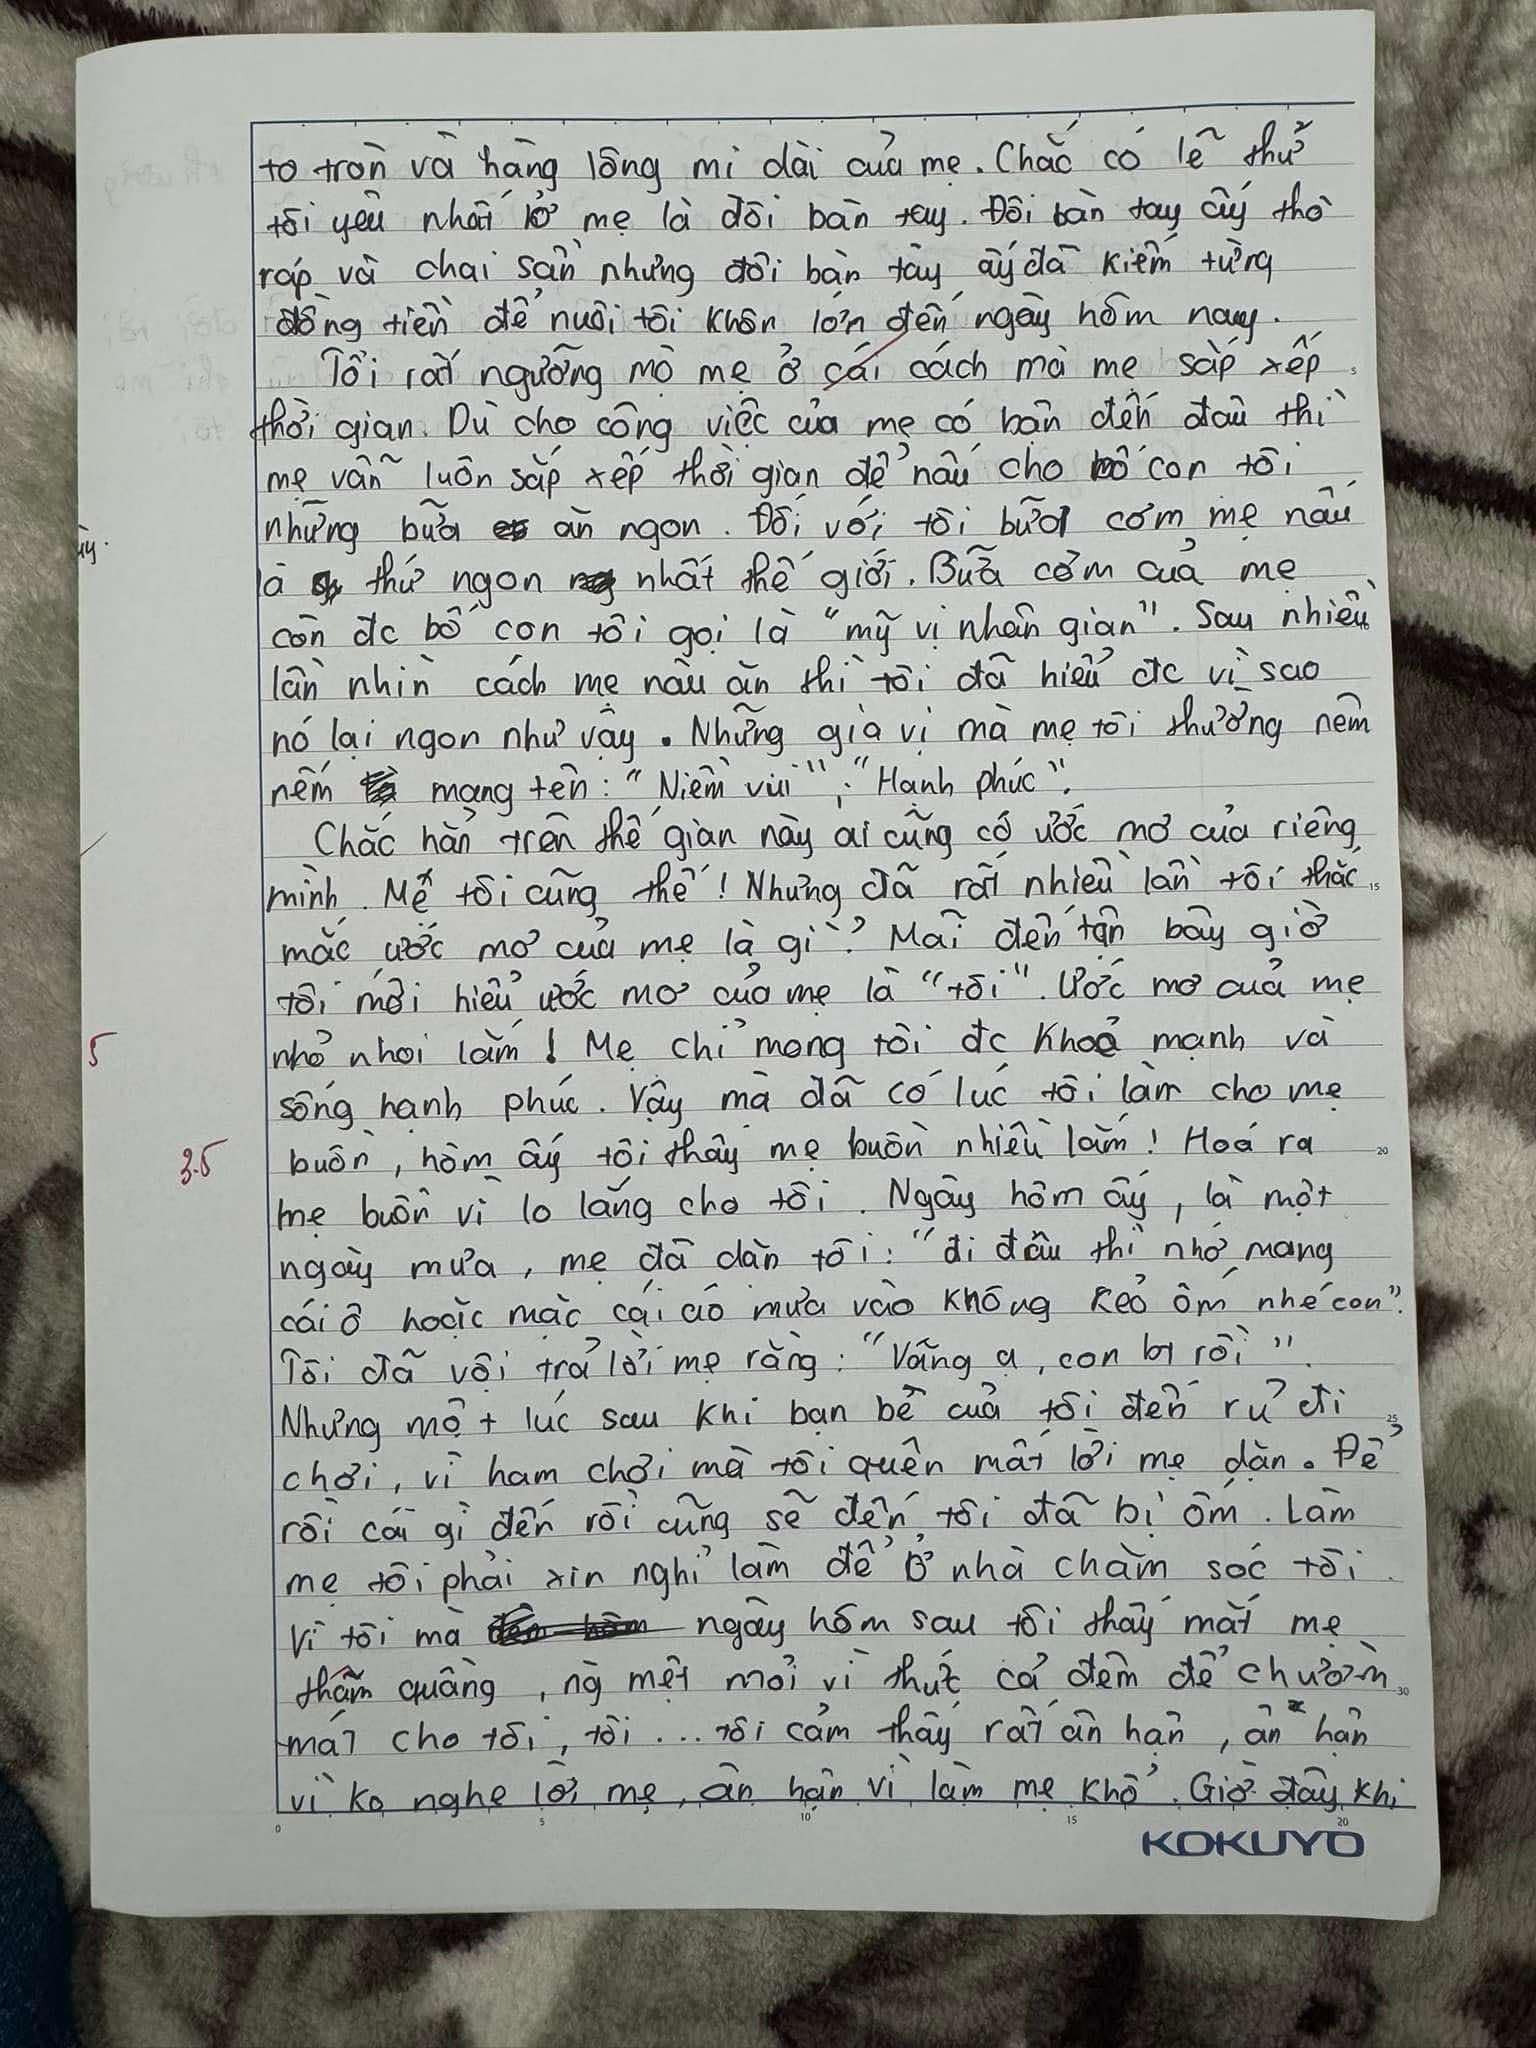 to tròn và hàng lông mi dài của mẹ. Chắc có lẽ thứ
tôi yêu nhất ở mẹ là đôi bàn tay. Đôi bàn tay ấy thô
ráp và chai sần nhưng đôi bàn tay ấy đã kiếm từng
đồng tiền để nuôi tôi khôn lớn đến ngày hôm nay.
Tôi rất ngưỡng mộ mẹ ở cái cách mà mẹ sắp xếp
thời gian. Dù cho công việc của mẹ có bận đến đâu thì
mẹ vẫn luôn sắp xếp thời gian để nấu cho bố con tôi
những bữa ăn ngon. Đối với tôi bữa cơm mẹ nấu
là thứ ngon nhất thế giới. Bữa cơm của mẹ
còn đc bố con tôi gọi là "mỹ vị nhân gian". Sau nhiều
lần nhìn cách mẹ nấu ăn thì tôi đã hiểu đc vì sao
nó lại ngon như vậy. Những gia vị mà mẹ tôi thường nêm
nếm mang tên: "Niềm vui"; "Hạnh phúc".
Chắc hẳn trên thế gian này ai cũng có ước mơ của riêng
mình. Mẹ tôi cũng thế! Nhưng đã rất nhiều lần tôi thắc
mắc ước mơ của mẹ là gì? Mãi đến tận bây giờ
tôi mới hiểu ước mơ của mẹ là "tôi". Ước mơ của mẹ
nhỏ nhoi lắm! Mẹ chỉ mong tôi đc khoẻ mạnh và
sống hạnh phúc. Vậy mà đã có lúc tôi làm cho mẹ
buồn, hôm ấy tôi thấy mẹ buồn nhiều lắm! Hoá ra
mẹ buồn vì lo lắng cho tôi. Ngày hôm ấy, là một
ngày mưa, mẹ đã dặn tôi: "đi đâu thì nhớ mang
cái ô hoặc mặc cái áo mưa vào không kẻo ốm nhé con".
Tôi đã vội trả lời mẹ rằng: "Vâng ạ, con bt rồi".
Nhưng một lúc sau khi bạn bè của tôi đến rủ đi
chơi, vì ham chơi mà tôi quên mất lời mẹ dặn. Để
rồi cái gì đến rồi cũng sẽ đến tôi đã bị ốm. Làm
mẹ tôi phải xin nghỉ làm để ở nhà chăm sóc tôi.
Vì tôi mà ngày hôm sau tôi thấy mắt mẹ
thâm quầng, ng mệt mỏi vì thức cả đêm để chườm
mát cho tôi, tôi ... tôi cảm thấy rất ân hận, ân hận
vì ko nghe lời mẹ, ân hận vì làm mẹ khổ. Giờ đây khi
5
3.5
5
15
20
25
30
0 5 10 15 20
KOKUYO